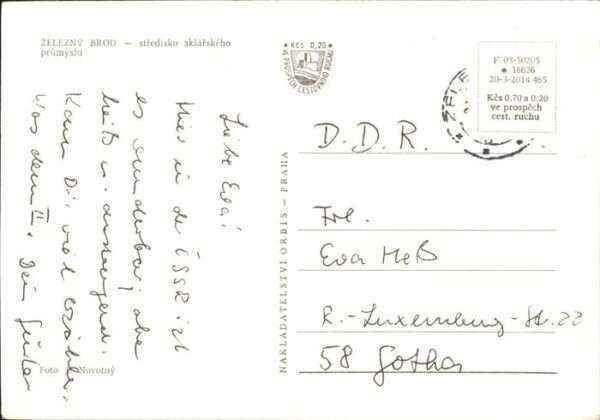 ŽELEZNÝ BROD — středisko sklářského
průmyslu
Liebe Eva!
Hier in der ČSSR ist
es wunderbar, aber
heiß u. anstrengend.
Kann Dir viel erzählen.
Dein
Foto Novotný
NAKLADATELSTVÍ ORBIS — PRAHA
Kčs 0,20
VE PROSPĚCH CESTOVNÍHO RUCHU
F 03-50205
* 16626
20-3-2014 465
Kčs 0.70 a 0.20
ve prospěch
cest. ruchu
D.D.R.
Frl.
Eva Heß
R.-Luxemburg-Str. 22
58 Gotha